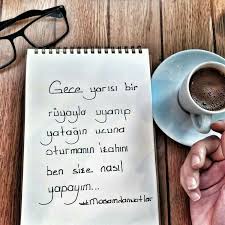 Gece yarısı bir
rüyayla uyanıp
yatağın ucuna
oturmanın izahını
ben size nasıl
yapayım...
#Masamdanotlar